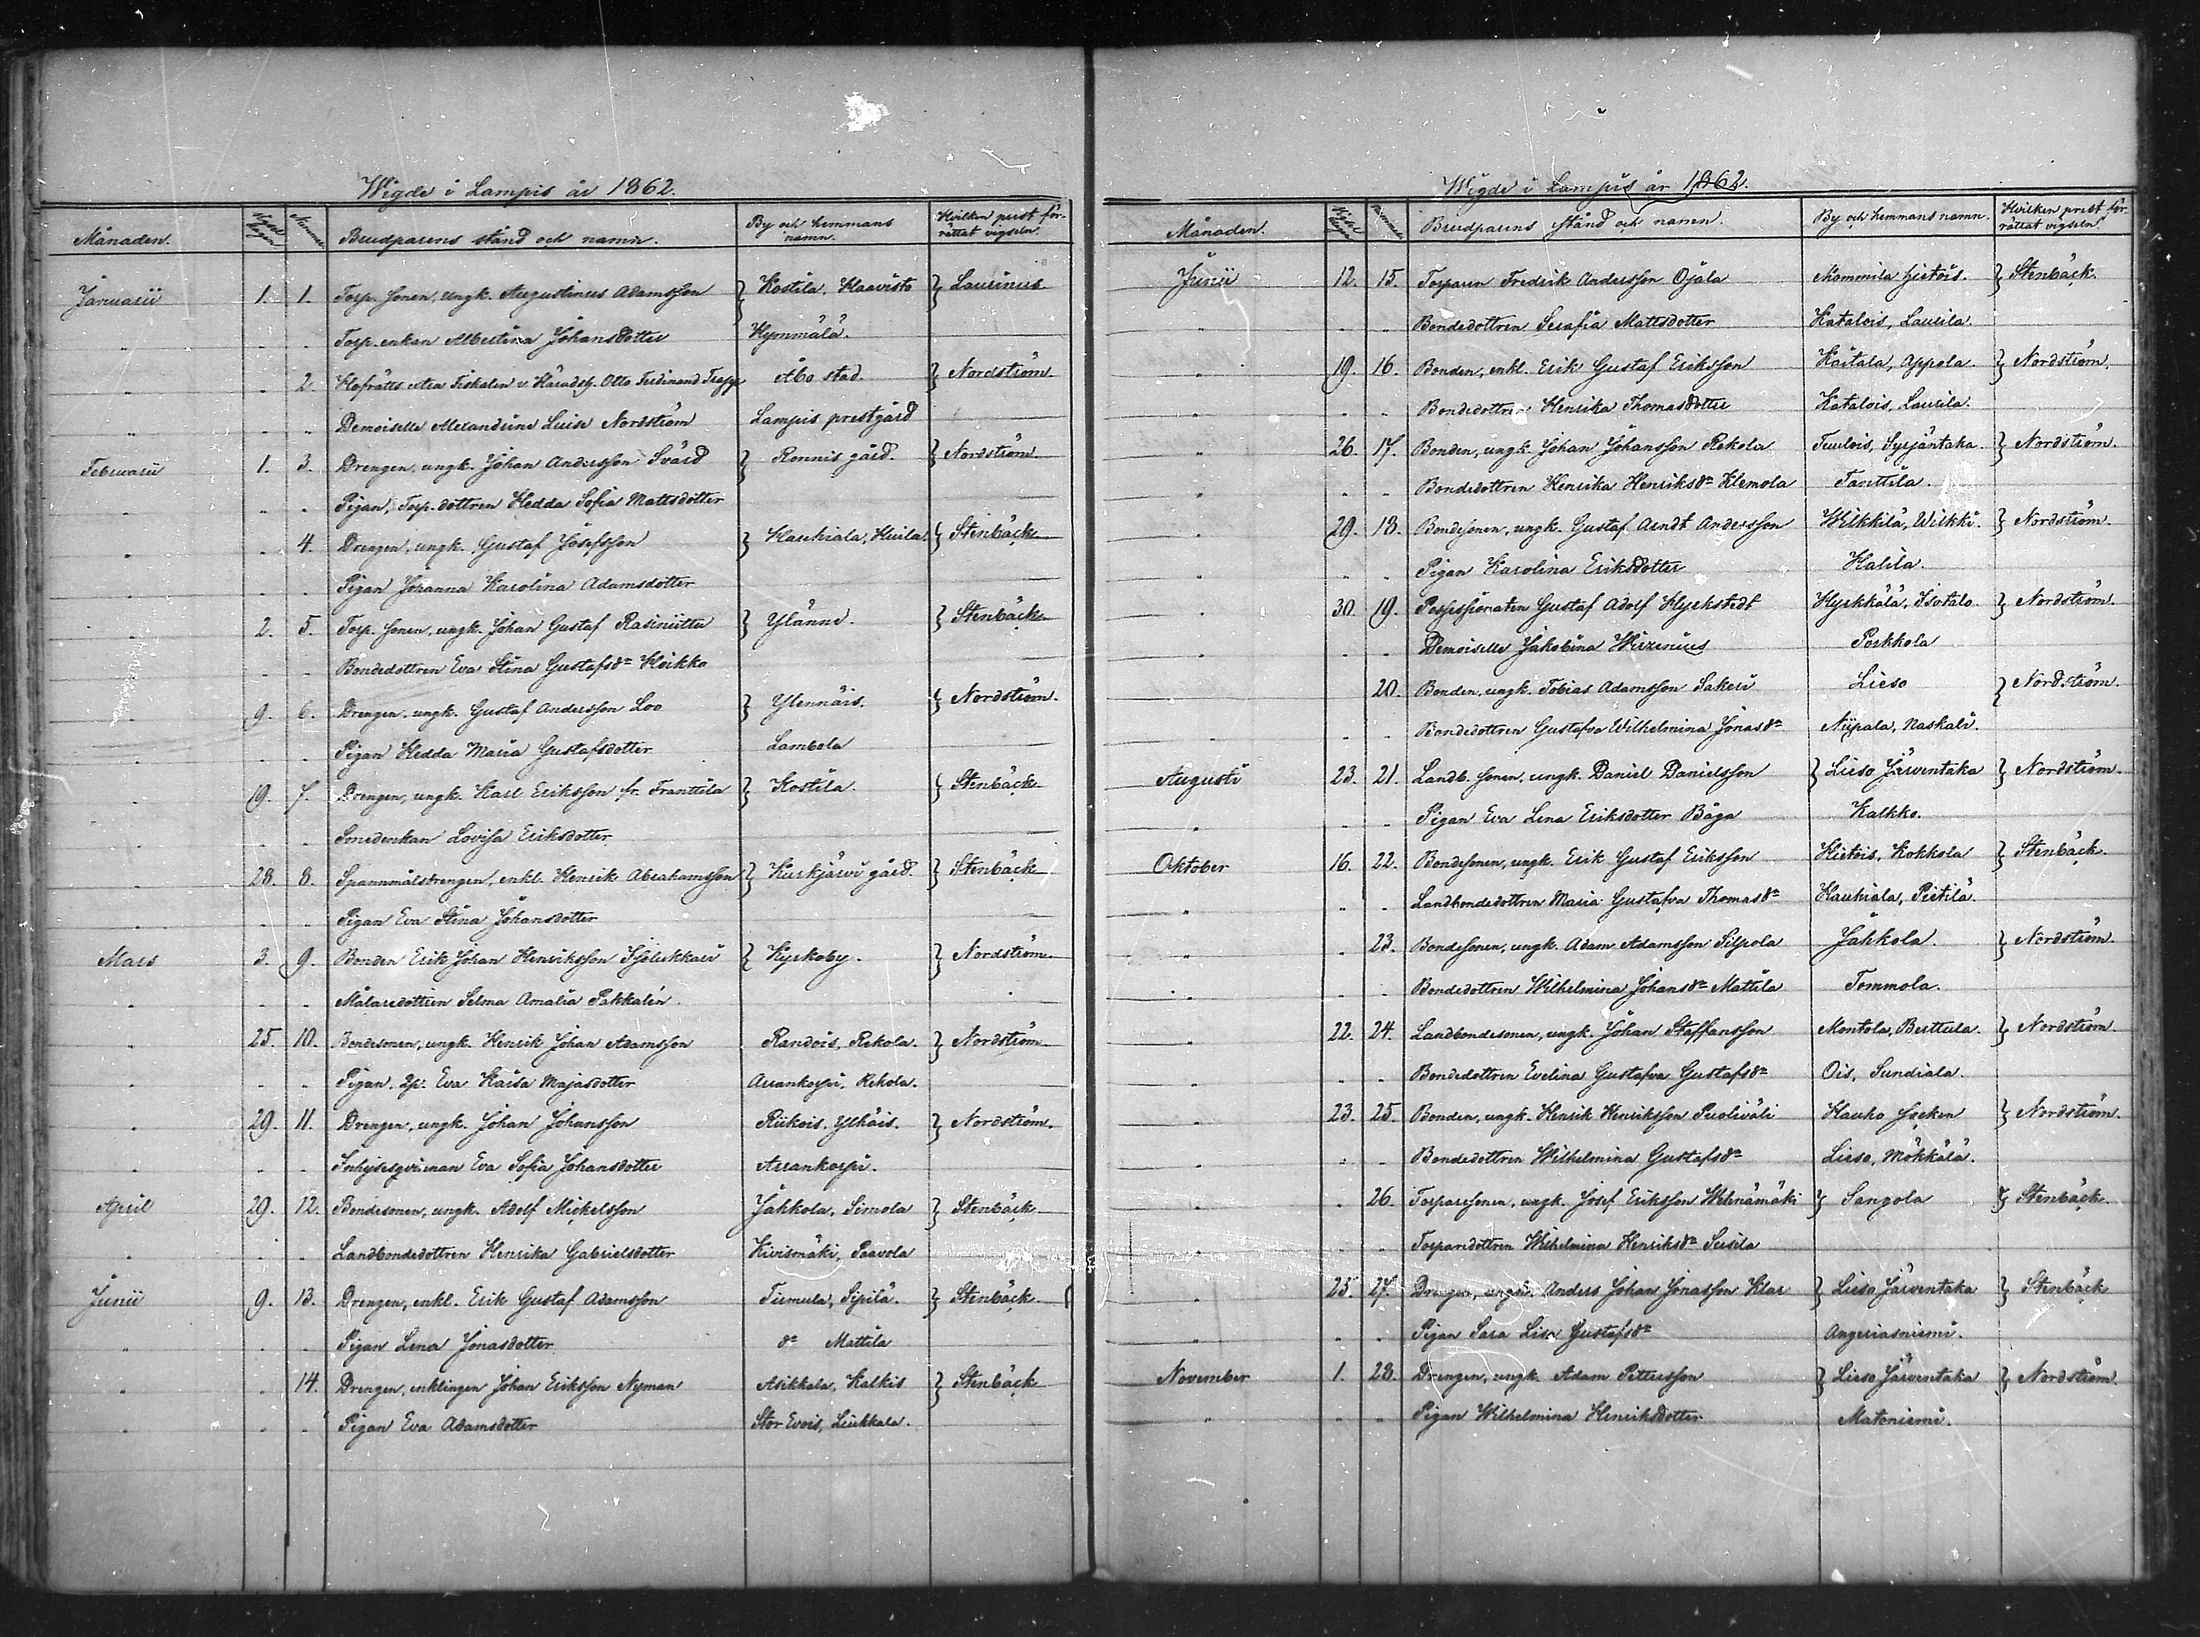 Wigde i Lampis år 1862.
Månaden. Vigseldagen. Nummer. Brudparens stånd och namn. By och hemmans namn. Hvilken prest förrättat vigseln.
Januarii 1. 1. Torp. sonen, ungk. Augustinus Adamsson } Kostila, Haavisto } Laurinus
" " " Torp. enkan Albertina Johansdotter Hymmälä.
" " 2. Hofrätts extra Fiskalen v. Häradsh. Otto Ferdinand Trapp Åbo stad. } Nordström
" " " Demoiselle Alexandrine Luise Nordström Lampis prestgård
Februarii 1. 3. Drengen, ungk. Johan Andersson Svärd } Ronnis gård. } Nordström.
" " " Pigan, Torp. dottren Hedda Sofia Mattsdotter
" " 4. Drengen, ungk. Gustaf Josefsson } Kaukiala, Huila. } Stenbäck
" " " Pigan Johanna Karolina Adamsdotter
" 2. 5. Torp. sonen, ungk. Johan Gustaf Rasiniitty } Ylänne. } Stenbäck
" " " Bondedottren Eva Stina Gustafsdr Hoikko
" 9. 6. Drengen, ungk. Gustaf Andersson Loo } Ylennäis. } Nordström.
" " " Pigan Hedda Maria Gustafsdotter Lambola
" 19. 7. Drengen, ungk. Karl Eriksson fr. Franttila } Kostila. } Stenbäck
" " " Smedenkan Lovisa Eriksdotter
" 28. 8. Spannmålsdrengen, enkl. Henrik Abrahamsson } Kurkjärvi gård. } Stenbäck
" " " Pigan Eva Stina Johansdotter
Mars 3. 9. Bonden Erik Johan Henriksson } Kyrkoby. } Nordström
" " " Målaredottren Selma Amalia Pakkalén.
" 25. 10. Bondesonen, ungk. Henrik Johan Adamsson Randois, Rekola. } Nordström
" " " Pigan, Eva Kaisa Majasdotter Arrankorpi, Rekola.
" 29. 11. Drengen, ungk. Johan Johansson Riikois, Ylhäis. } Nordström.
" " " Inhysesqvinnan Eva Sofia Johansdotter Arrankorpi.
April 29. 12. Bondesonen, ungk. Adolf Mickelsson Jahkola, Simola } Stenbäck
" " " Landbondedottren Henrika Gabrielsdotter Kivismäki, Paavola
Junii 9. 13. Drengen, enkl. Erik Gustaf Adamsson Tirmula, Sipilä. } Stenbäck
" " " Pigan Lena Jonasdotter dr Mattila
" " 14. Drengen, enklingen Johan Eriksson Nyman Asikkala, Kalkis } Stenbäck
" " " Pigan Eva Adamsdotter Stor Evois, Liukkala.
Wigde i Lampis år 1862.
Månaden. Vigseldagen. Nummer. Brudparens stånd och namn. By och hemmans namn. Hvilken prest förrättat vigseln.
Junii 12. 15. Torparen Fredrik Andersson Ojala Mommila Hietois. } Stenbäck.
" " " Bondedottren Serafia Mattsdotter Katalois, Laurila.
" 19. 16. Bonden, enkl. Erik Gustaf Eriksson Kaitala, Appola. } Nordström.
" " " Bondedottren Henrika Thomasdotter Katalois, Laurila.
" 26. 17. Bonden, ungk. Johan Johansson Rekola Tuulois, Syrjäntaka. } Nordström.
" " " Bondedottren Henrika Henriksdr Klemola Tanttila.
" 29. 18. Bondesonen, ungk. Gustaf Arndt Andersson Wilkkilä, Wilkki. } Nordström.
" " " Pigan Karolina Eriksdotter Kalila.
" 30. 19. Possessionaten Gustaf Adolf Hyrkstedt Hyrkkälä, Isotalo. } Nordström.
" " " Demoiselle Jakobina Wirzenius Porkkola
20. Bonden, ungk. Tobias Adamsson Sakeri Lieso } Nordström.
" " " Bondedottren Gustafva Wilhelmina Jonasdr Niipala, Naskali.
Augusti 23. 21. Landb. sonen, ungk. Daniel Danielsson } Lieso Järventaka } Nordström.
" " " Pigan Eva Lena Eriksdotter Båga Kalkko.
Oktober 16. 22. Bondesonen, ungk. Erik Gustaf Eriksson Hietois, Kokkola } Stenbäck.
" " " Landbondedottren Maria Gustafva Thomasdr Kaukiala, Pietilä.
" " 23. Bondesonen, ungk. Adam Adamsson Silpola Jahkola. } Nordström.
" " " Bondedottren Wilhelmina Johansdr Mattila Tommola.
" 22. 24. Landbondesonen, ungk. Johan Staffansson Montola, Berttula. } Nordström.
" " " Bondedottren Evelina Gustafva Gustafsdr Ois, Sundiala.
" 23. 25. Bonden, ungk. Henrik Henriksson Puoliväli Hauho socken } Nordström.
" " " Bondedottren Wilhelmina Gustafsdr Lieso, Mökkälä.
" 26. Torparesonen, ungk. Josef Eriksson } Sangola } Stenbäck.
" " " Torparedottren Wilhelmina Henriksdr Susila
" 25. 27. Drengen, ungk. Anders Johan Jonasson Klar } Lieso Järventaka } Stenbäck
" " " Pigan Sara Lisa Gustafsdr Angeriasniemi.
November 1. 28. Drengen, ungk. Adam Pettersson } Lieso Järventaka } Nordström.
" " " Pigan Wilhelmina Henriksdotter Matoniemi.